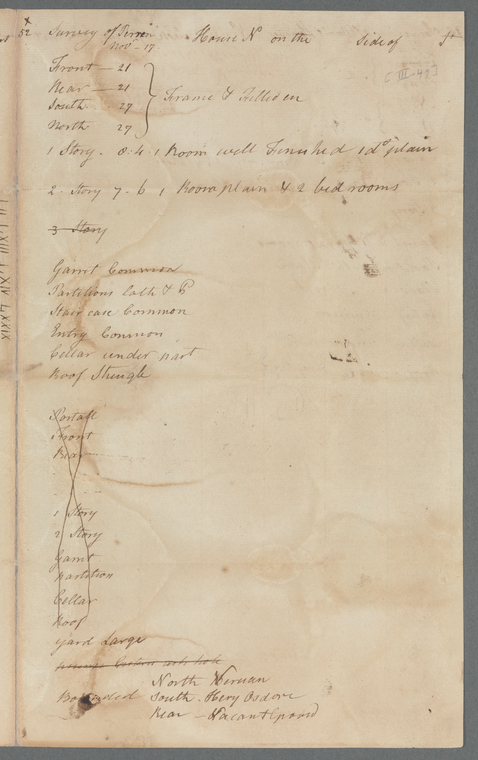 52 Survey of House No on the Side of St
Nov - 17
[III-49]
Front — 21
Rear — 21
South 27
North 27
Frame & Filled in
1 Story. 8.4. 1 Room well Finished 1 do plain
2 Story 7. 6 1 Room plain & 2 bed rooms
3 Story
Garrit Common
Partitions lath & P
Stair case Common
Entry Common
Cellar under part
Roof Shingle
Front
Rear
1 Story
2 Story
Garrit
partition
Cellar
Roof
yard Large
North
Bounded South. Hery
Rear — Vacant